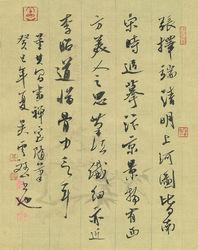 張擇端清明上河圖皆南
宋時追摹汴京景物有西
方美人之思筆法纖細亦近
李昭道惜骨力乏耳
董其昌畫禪室隨筆
癸巳年夏吳